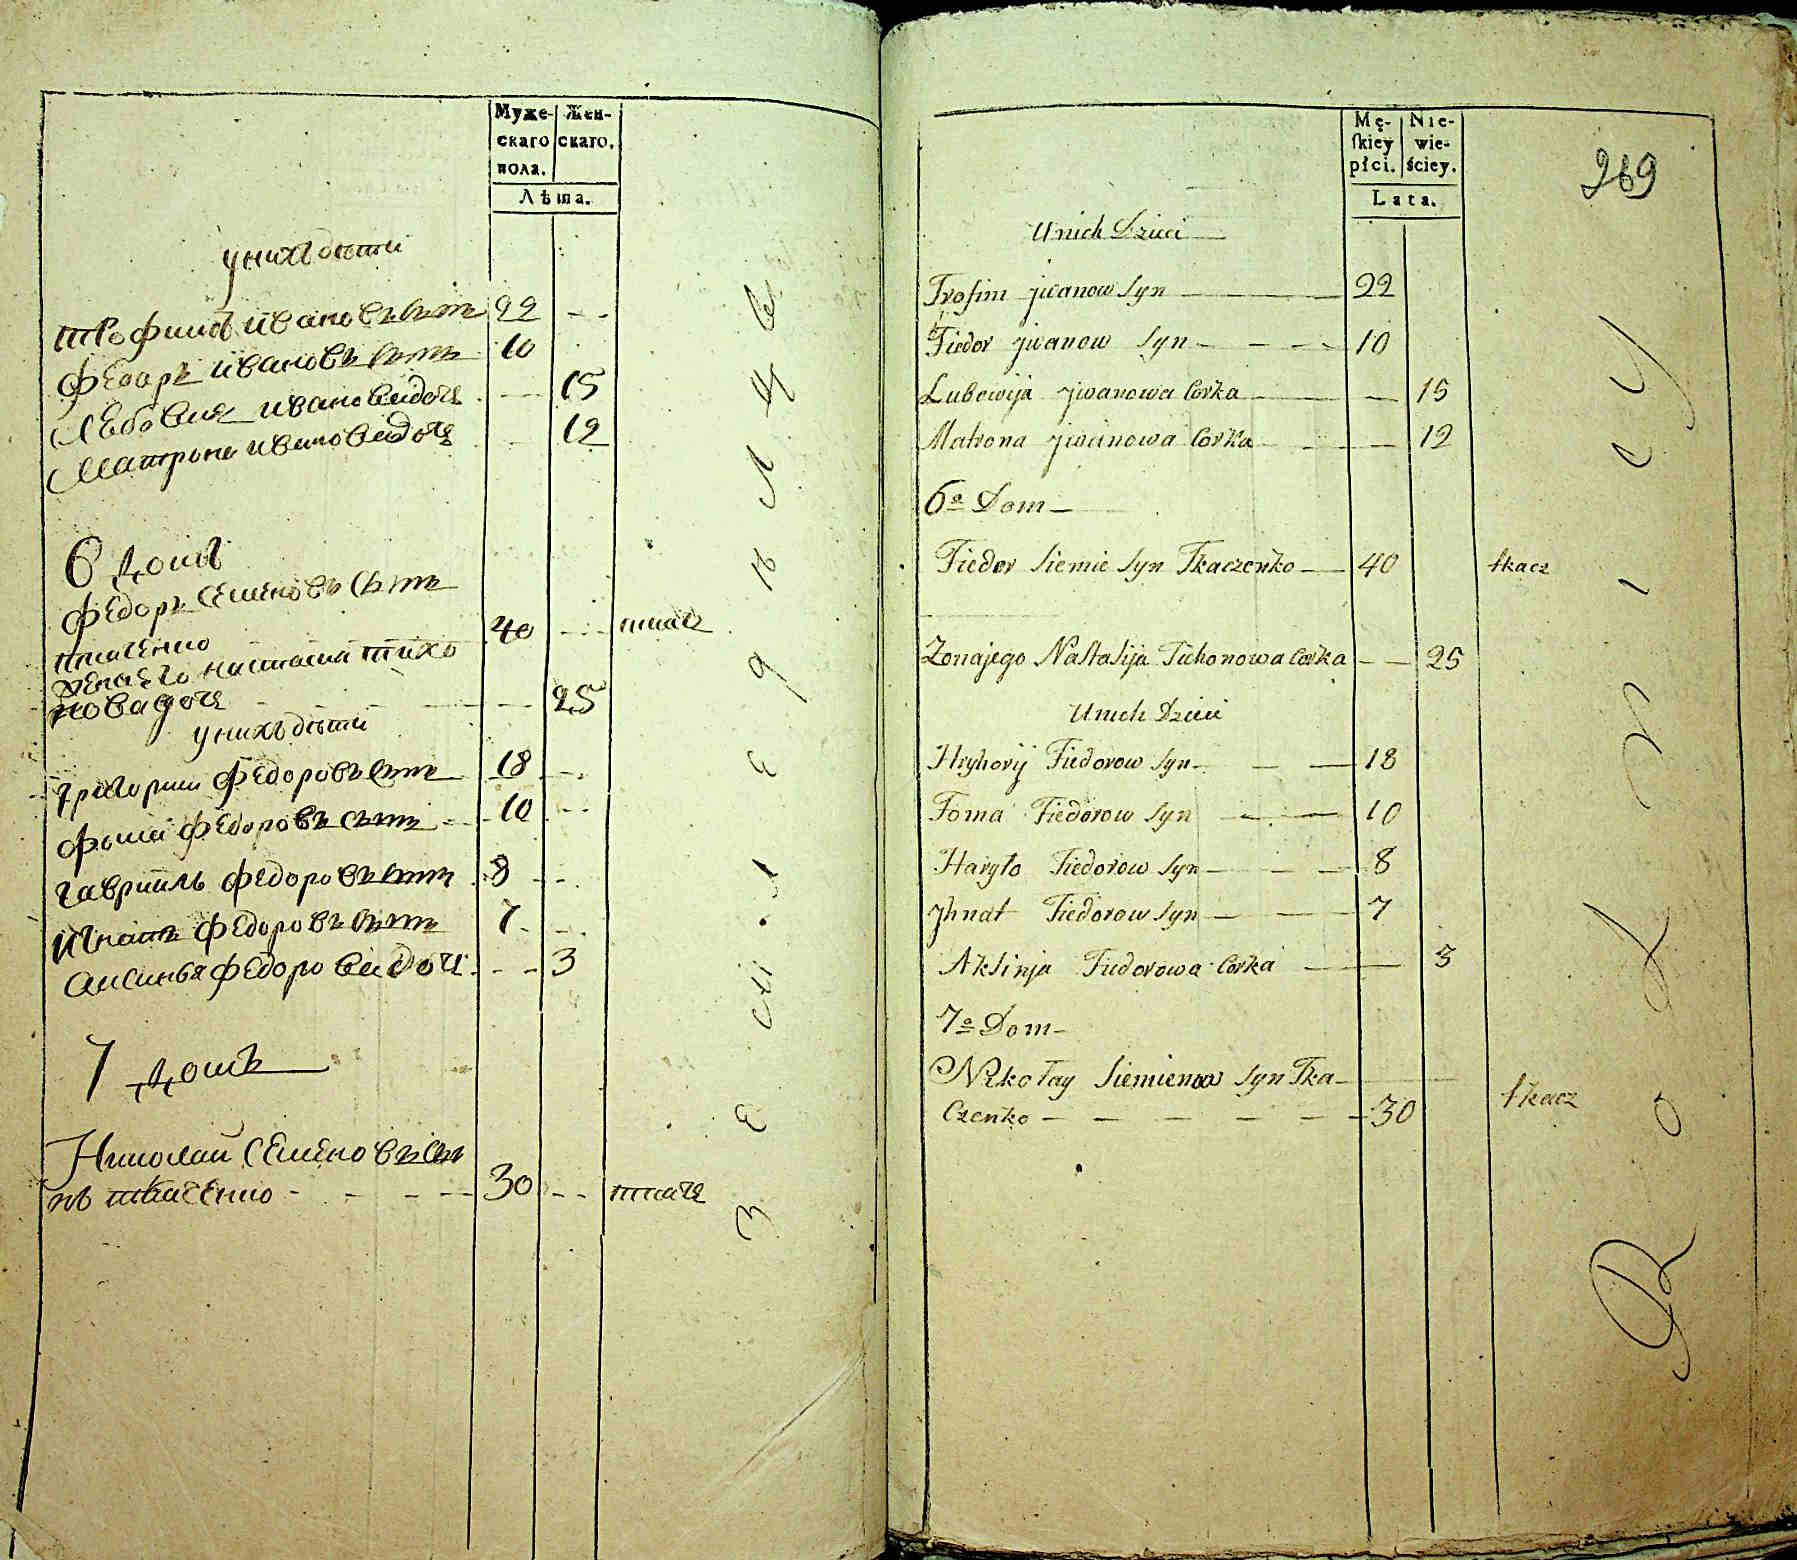 Муже-
скаго
пола.
Жен-
скаго.
Лѣта.
у нихъ дѣти
трофимъ ивановъ сынъ 22
Федоръ ивановъ сынъ 10
Любовия иванова дочь 15
Матрона иванова дочь 12
6 домъ
Федоръ Семеновъ сынъ
ткаченко 40 ткачь
жена его настасия тихо
нова дочь 25
у нихъ дѣти
григорий Федоровъ сынъ 18
Фома федоровъ сынъ 10
гавриилъ федоровъ сынъ 8
игнатъ федоровъ сынъ 7
аксинья федорова дочь 3
7 домъ
Николай Семеновъ сы
нъ ткаченко 30 ткачь
Mę-
skiey
płci.
Nie-
wie-
ściey.
Lata.
269
U nich Dzieci
Trofim jwanow syn 22
Fiedor jwanow syn 10
Lubowija jwanowa Corka 15
Matrona jwanowa Corka 12
6º Dom
Fiedor Siemie syn Tkaczenko 40 tkacz
Zonajego Nastasija Tichonowa Corka 25
U nich Dzieci
Hryhorij Fiedorow syn 18
Foma Fiedorow syn 10
Haryło Fiedorow syn 8
jhnat Fiedorow syn 7
Aksinja Fiedorowa Corka 3
7º Dom
Nikołay Siemienow syn Tka-
czenko 30 tkacz
Rolnicy